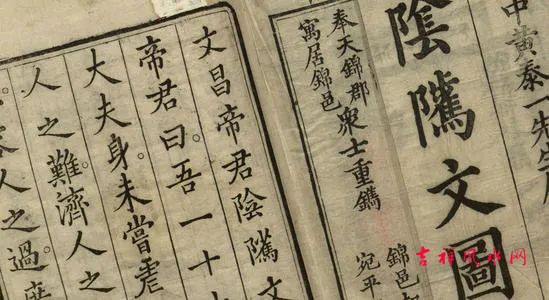 中黄泰一先
陰隲文圖
奉天錦郡
寓居錦邑
衆士重鐫
錦邑
宛平
文昌帝君陰隲文
帝君曰。吾一十
大夫身未嘗虐
人之難。濟人之
容人之過。
吉祥风水网